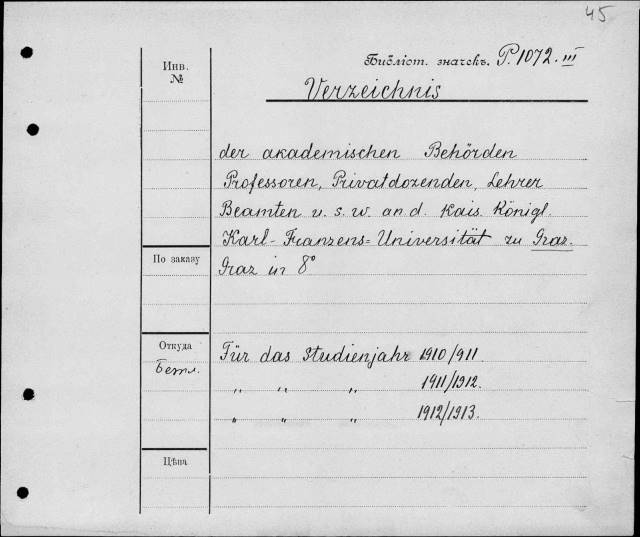 45
Библіот. значекъ. P.1072.III
Инв.
№
Verzeichnis
der akademischen Behörden
Professoren, Privatdozenden, Lehrer
Beamten u. s. w. an d. kais. königl.
Karl-Franzens=Universität zu Graz.
По заказу
Graz in 8°
Откуда
Für das Studienjahr 1910/911.
„ „ „ 1911/1912.
„ „ „ 1912/1913.
Цѣна